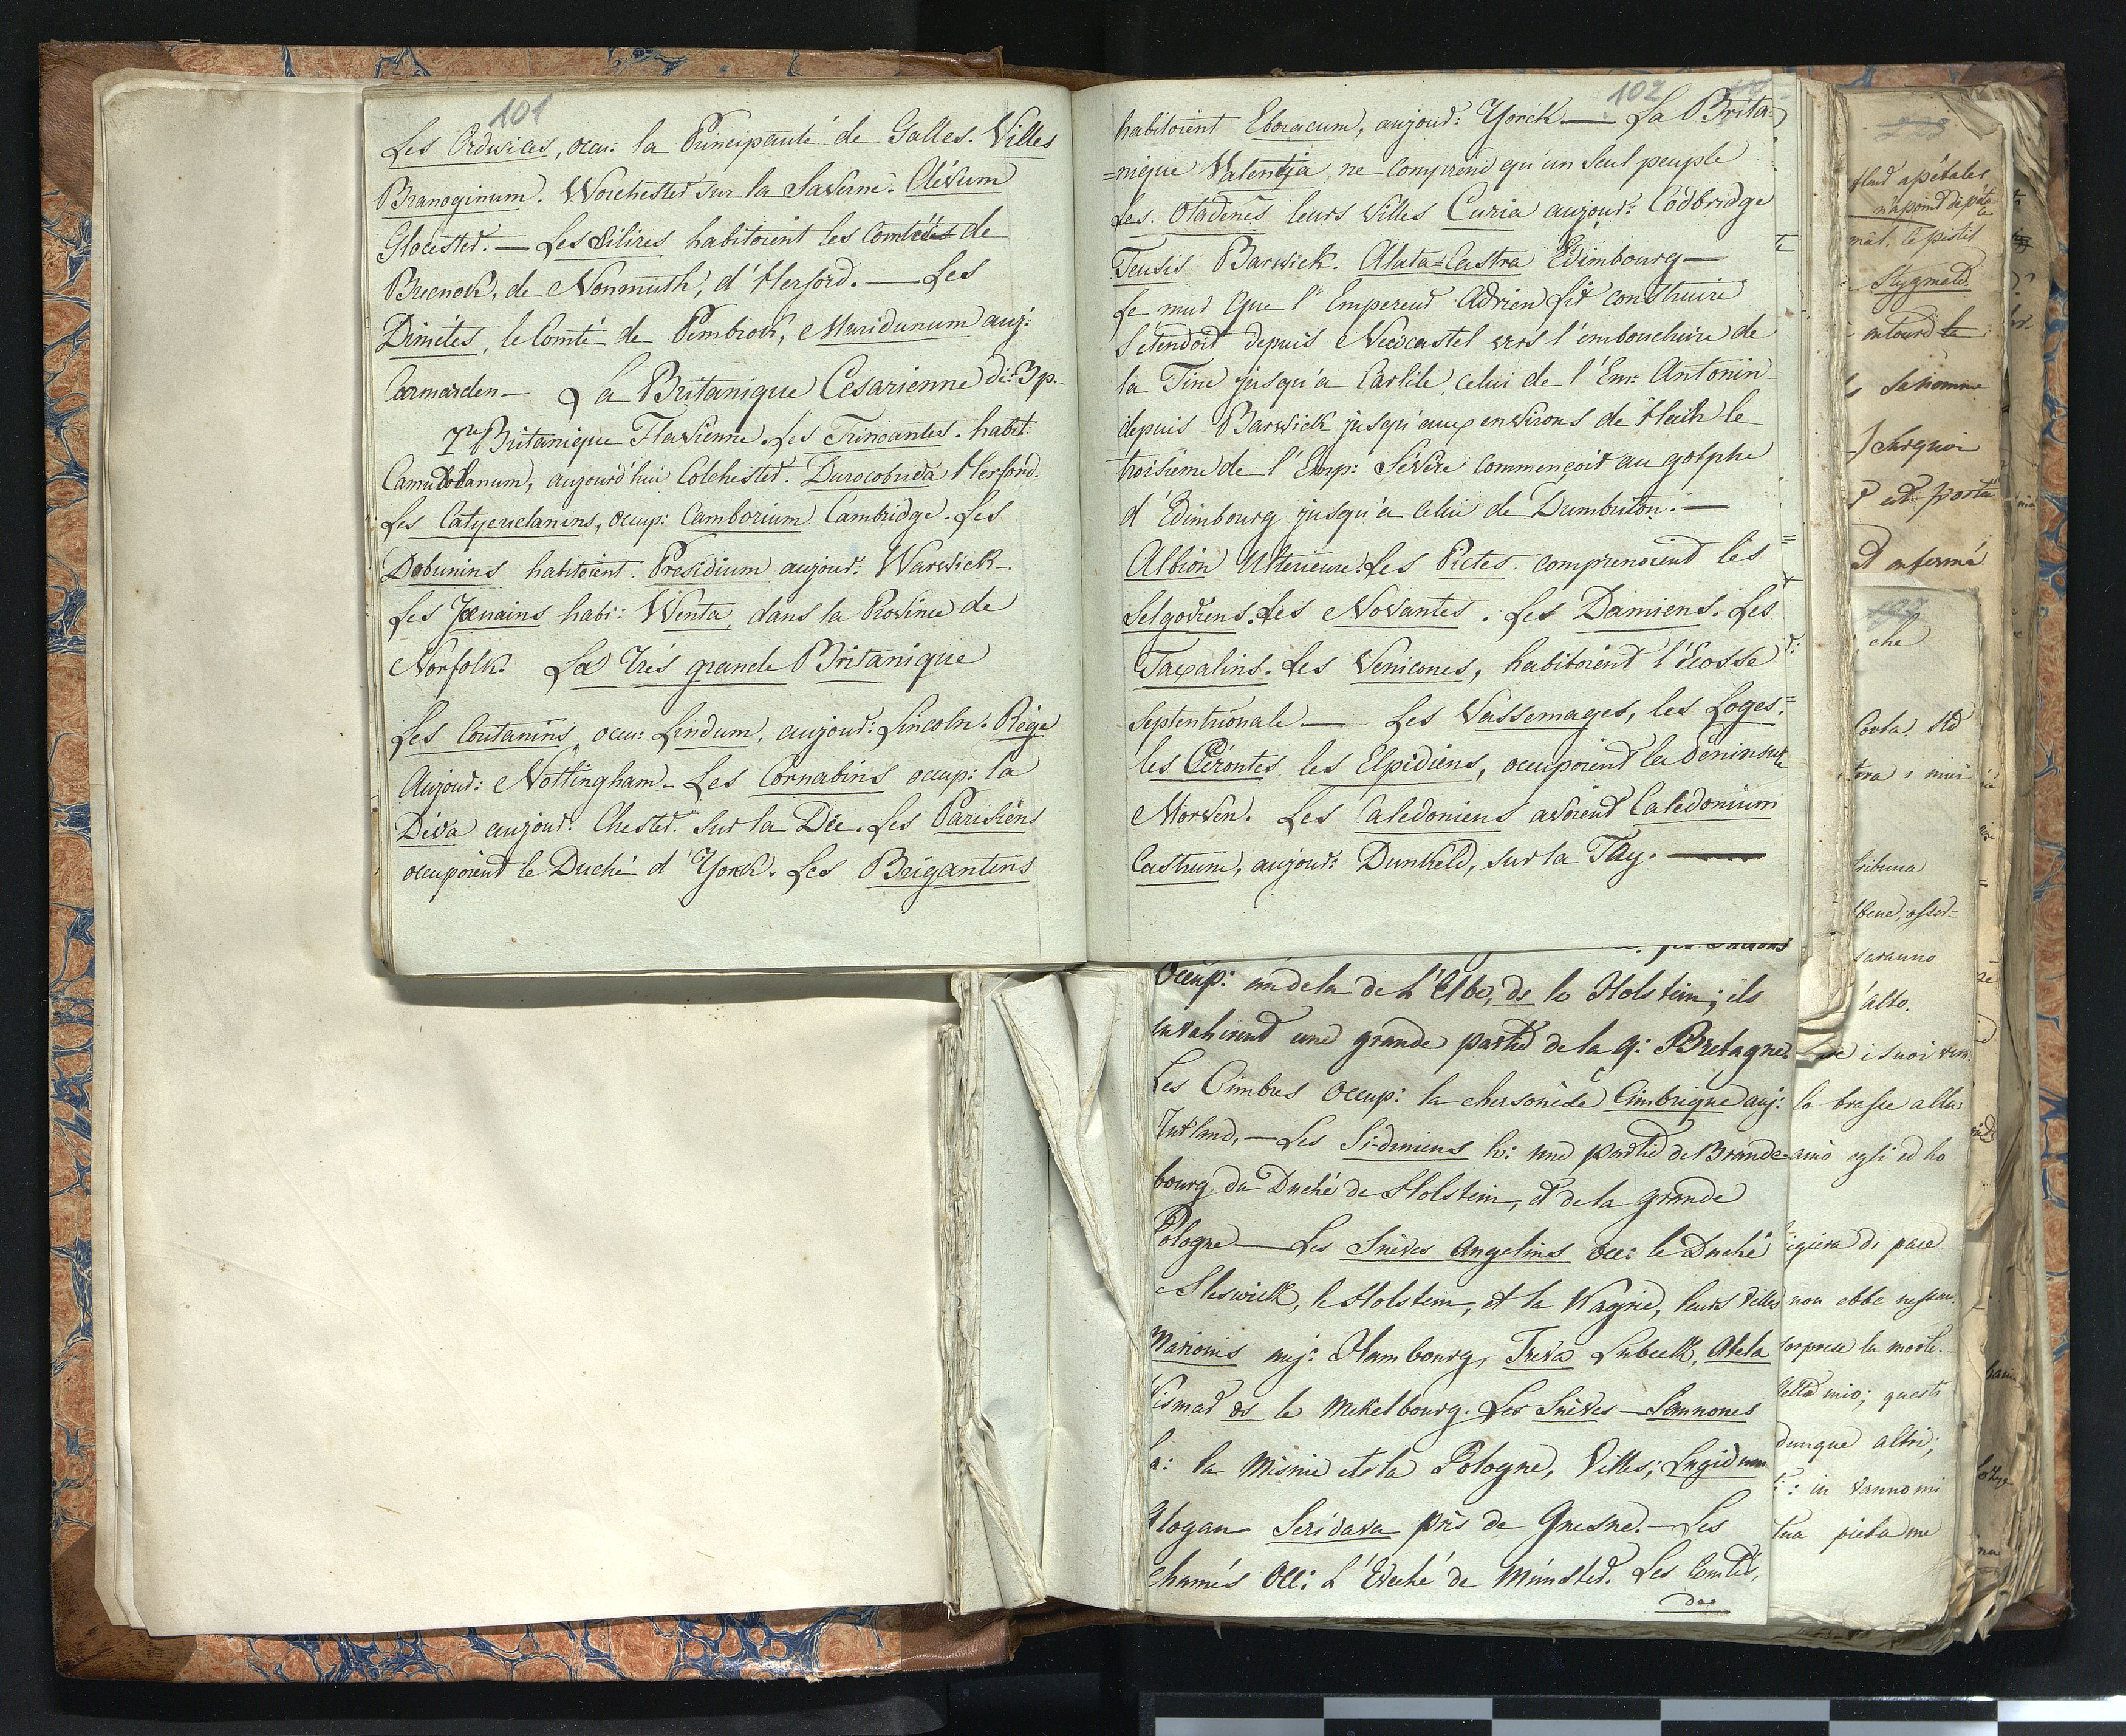 101
Les Ordovices, occu: la Principauté de Galles. Villes
Branoginum. Worchester sur la Saverne. Clévum
Glocester. — Les Silires habitoient les Comtées de
Brecnock, de Nonmuth, d'Herford. — Les
Dimétes, le Comté de Pembrock, Maridunum auj:
Carmarden — La Britanique Cesarienne di: 3 p.
1re Britanique Flavienne. Les Trinoantes. habit:
Camudolanum, aujourd'hui Colchester. Durocobrida Herford.
Les Catyeuclanins, occup: Camborium Cambridge. Les
Dobunins habitoient Presidium aujour: Warwick —.
Les Jcenains habi: Wenta, dans la Province de
Norfolk. La Trés grande Britanique
Les Coutanins occu: Lindum, aujour: Lincoln. Rége
Aujour: Nottingham — Les Cornabins occup: la
Déva aujour: Chester sur la Dée. Les Parisiens
occupoient le Duché d'Yorck. Les Brigantins
102
habitoient Eboracum, aujour: Yorck — La Brita=
=nique Valentja, ne comprend qu'un seul peuple
Les Otadenes leurs villes Curia aujour: Codbridge
Teusis Barwick. Alata=Castra Edimbourg —
Le mur que l'Empereur Adrien fit construire
s'etendoit depuis Newcastel vers l'embouchure de
la Tine jusqu'a Carlile, celui de l'Em: Antonin
depuis Barwick jusqu'aux environs de Flaih le
troisième de l'Emp: Sévère commençoit au golphe
d'Edimbourg jusqu'a celui de Dumbriton. —
Albion Ulterieure. Les Pictes comprenoient les
Selgoviens. Les Novantes. Les Damiens. Les
Taxalins. Les Venicones, habitoient l'Ecosse
Septentrionale — Les Vassemages, les Loges,
les Cérontes, les Elpidiens, occupoient la Péninsule
Morven. Les Caledoniens avoient Caledonium
Castrum, aujour: Dunkeld, sur la Tay. —
Occup: audela de L'Elbe, ds le Holstein; ils
envahirent une grande partie de la g: Bretagne.
Les Cimbres Occup: la chersonèse Cimbrique auj:
Jutland, — Les Sidiniens h: une partie de Brande=
bourg du Duché de Holstein, et de la grande
Pologne — Les Suèves Angelins occ: le Duché
Sleswick, le Holstein, et la Wagrie, leurs villes
Marionis auj: Hambourg, Treva Lubeck, Alela
Wismar ds le Mekelbourg. Les Suèves — Semnones
ha: la Misnie et la Pologne, Villes; Lugidum
Glogau Seridava près de Gnesne. — Les
Chamés Occ: L'Eveché de Münster. Les Comtés,
223
apétales
le pistil
Stygmate
autour le
tribuna
saranno
l'alto.
e i suoi
le brasse alla
egli ed ho
di pace
non ebbe
la morte.
mio; questi
dunque altri;
in vanno mi
tua pieta me